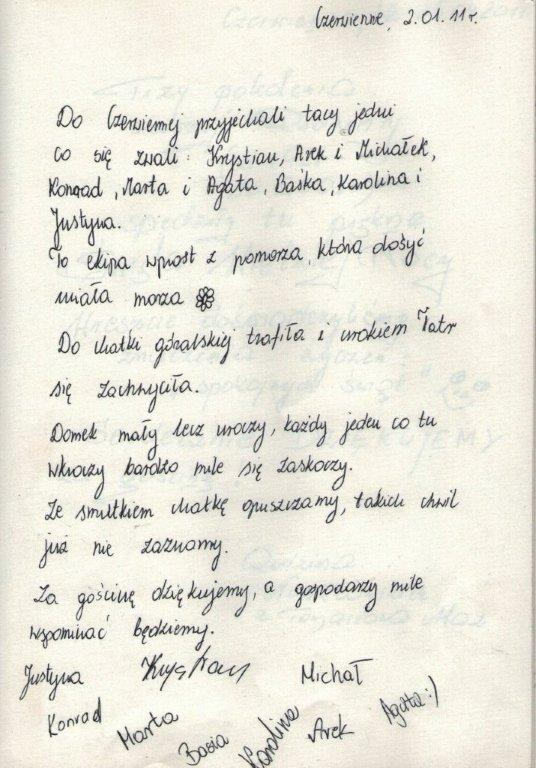 Czerwienne, 2.01.11r.
Do Czerwiennej przyjechali tacy jedni
co się zwali: Krystian, Arek i Michałek,
Konrad, Marta i Agata, Baśka, Karolina i
Justyna.
To ekipa wprost z pomorza, która dosyć
miała morza
Do chatki góralskiej trafiła i urokiem Tatr
się zachwyciła.
Domek mały lecz uroczy, każdy jeden co tu
wkroczy bardzo mile się zaskoczy.
Ze smutkiem chatkę opuszczamy, takich chwil
już nie zaznamy.
Za gościnę dziękujemy, a gospodarzy mile
wspominać będziemy.
Justyna Krystian Michał
Konrad Marta Basia Karolina Arek Agata :)